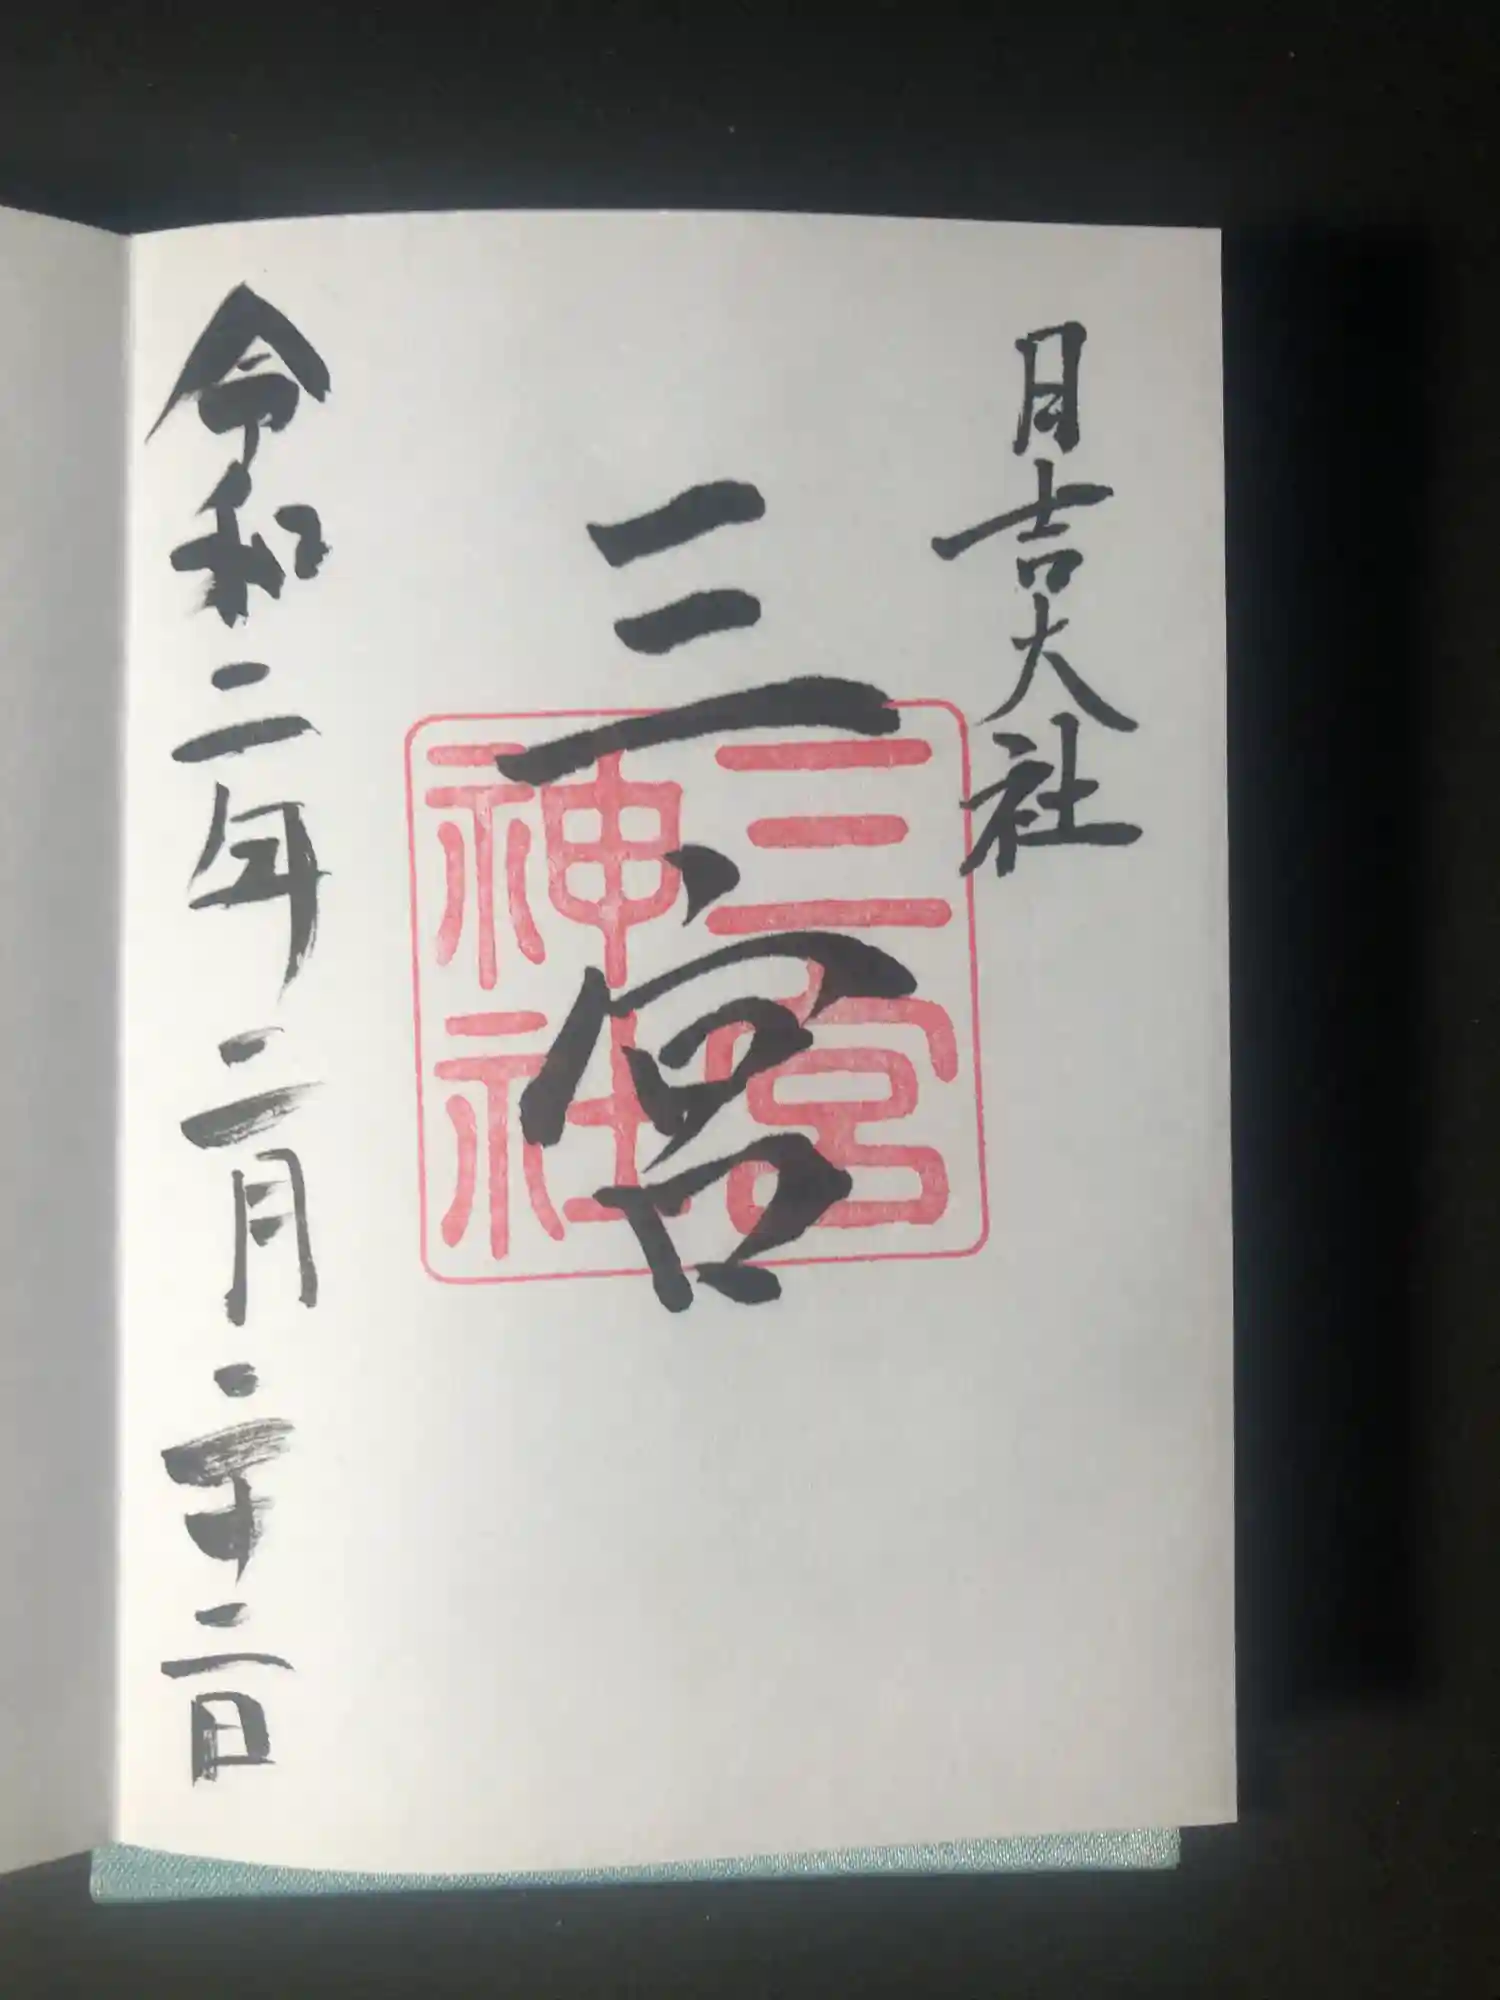 日吉大社
三宮
三宮
神社
令和二年二月二十二日